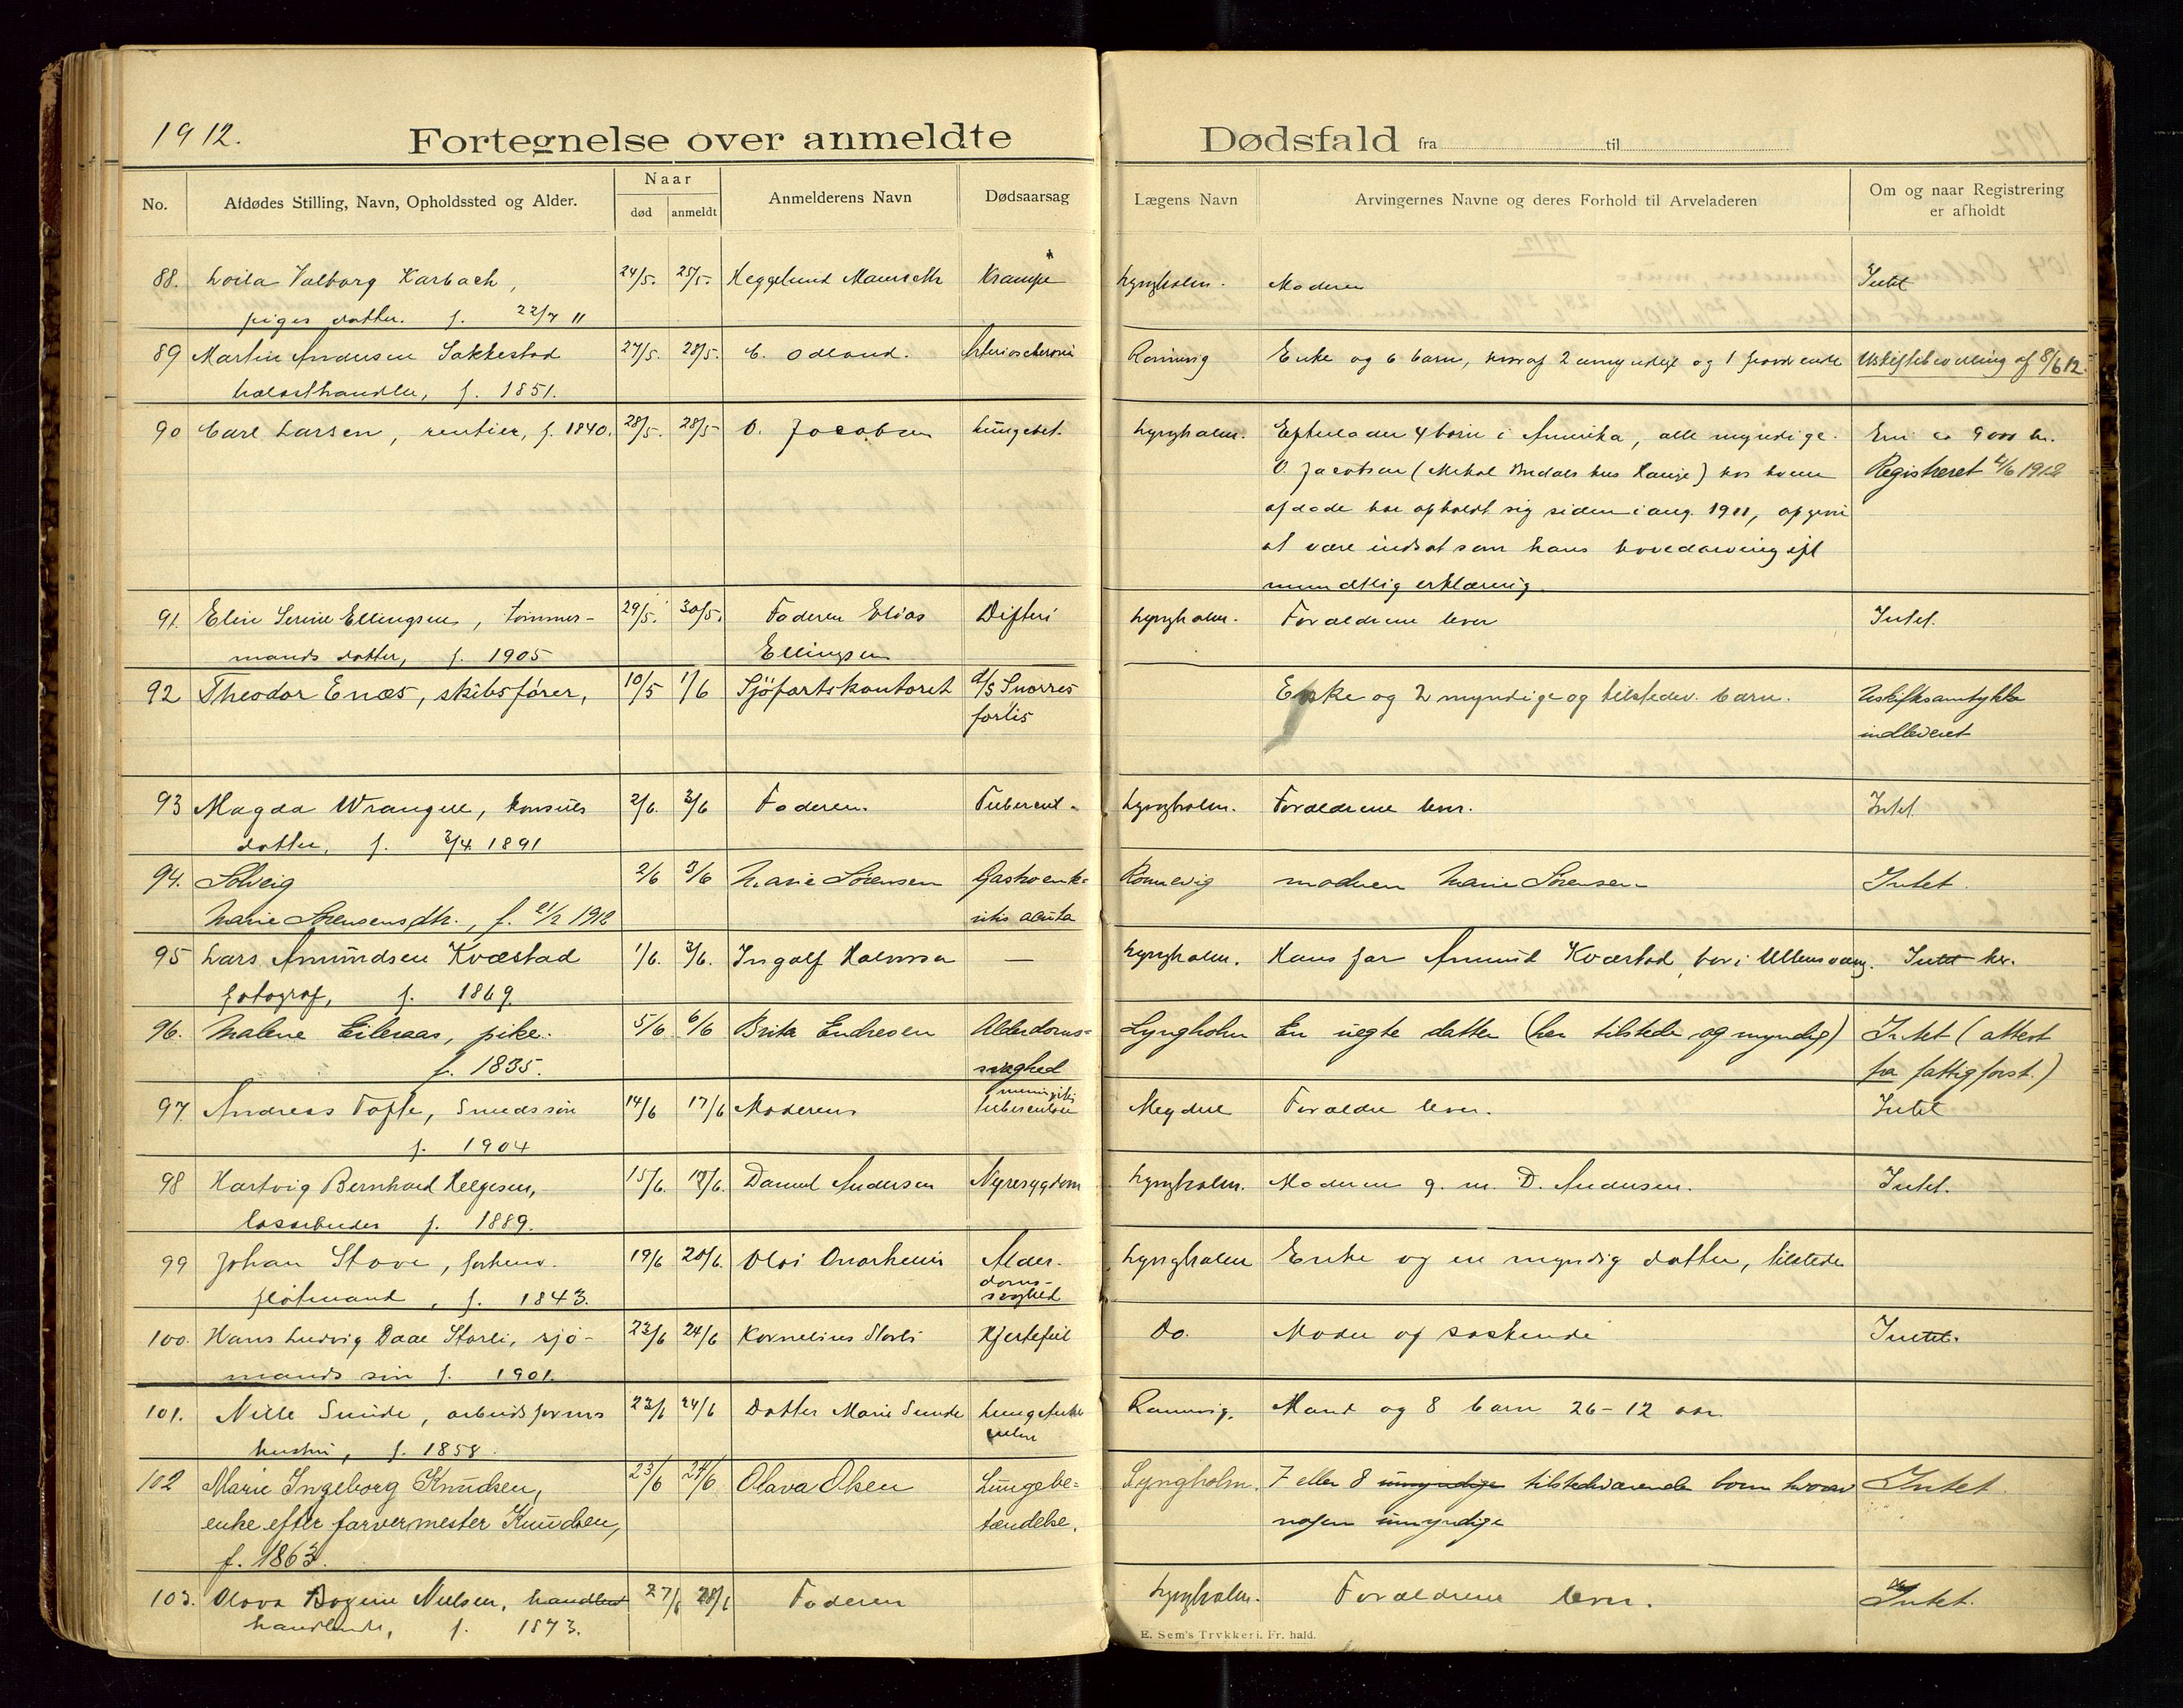 1912.
Fortegnelse over anmeldte Dødsfald fra til
No.
Afdødes Stilling, Navn, Opholdssted og Alder.
Naar
død
anmeldt
Anmelderens Navn
Dødsaarsag
Lægens Navn
Arvingernes Navne og deres Forhold til Arveladeren
Om og naar Registrering
er afholdt
88. Valborg Karbach, 24/5. 25/5. Krampe Lyngholm. Moderen Intet
piges datter. f. 22/7 11
89 Martin Andersen Sakkestad 27/5. 28/5. C. Odland. Enke og 6 barn, hvoraf 2 umyndige og 1 Uskiftebevilling af 8/6 12.
f. 1851.
90 Carl Larsen, rentier, f. 1840. 28/5. 28/5 O. Jacobsen Lungebet. Lyngholm. Efterlader 4 børn i Amerika, alle myndige. 9000 kr.
O. Jacobsen ( hus Hauge) hos hvem Registreret 4/6 1912
afdøde har opholdt sig siden i aug. 1911, opgives
at være indsat som hans hovedarving ifl
mundtlig erklæring
91. Elin Serine Ellingsen, tømmer- 29/5. 30/5. Faderen Elias Difteri Lyngholm. Forældrene lever Intet.
mands datter, f. 1905 Ellingsen
92 Theodor Enæs, skibsfører, 10/5 1/6 Sjöfartskontoret d/s Snorres Enke og 2 myndige og tilstedev. barn. Uskiftesamtykke
forlis indleveret
93 Magda Wrangell, konsuls 2/6. 3/6 Faderen. Tubercul. Lyngholm. Forældrene lever. Intet.
datter, f. 3/4 1891
94. Solveig 2/6 3/6 Marie Sørensen Gastroente- Rønnevig moderen Marie Sørensen Intet.
Marie Sørensens dtr., f. 21/2 1912 ritis acuta
95 Lars Amundsen Kvæstad 1/6. 3/6. Ingolf Halmsa — Lyngholm. Hans far Amund Kvæstad, bor i Ullensvang. Intet her.
fotograf, f. 1869.
96. Malene Eileraas, pike. 5/6 6/6 Brita Endresen Alderdoms- Lyngholm En uegte datter (her tilstede og myndig) Intet (attest
f. 1835. svaghed fra fattigforst.)
97. Andreas Tofte, Smedssøn 14/6 17/6 Moderen meningitis Meydell Forældre lever. Intet
f. 1904 tuberculose
98 Hartvig Bernhard Helgesen, 15/6. 18/6. Daniel Andersen Nyresygdom Lyngholm. Moderen g. m. D. Andersen. Intet.
løsarbeider f. 1889.
99 Johan Stove, forhenv. 19/6 20/6. Alder- Lyngholm Enke og en myndig datter, tilstede
, f. 1843. doms-
svaghed
100. Hans Ludvig Daae Storli, sjø- 23/6 24/6 Kornelius Storli Hjertefeil Do. Moder og søskende Intet.
mands søn f. 1901.
101. Nille Sunde, arbeidsform. 23/6 24/6 Datter Marie Sunde Mand og 8 barn 26-12 aar.
hustru, f. 1858.
102 Marie Ingeborg Knudsen, 23/6 24/6 Olava Olsen Lungebe- Lyngholm. 7 eller 8 umyndige tilstedeværende born hvorav Intet.
enke efter farvermester Knudsen, tændelse. nogen umyndige
f. 1863.
103. Olava Bogine Nielsen, handlend 27/6 28/6 Faderen Lyngholm. Forældrene lever. Intet.
handlende, f. 1873.
E. Sem's Trykkeri, Fr. hald.